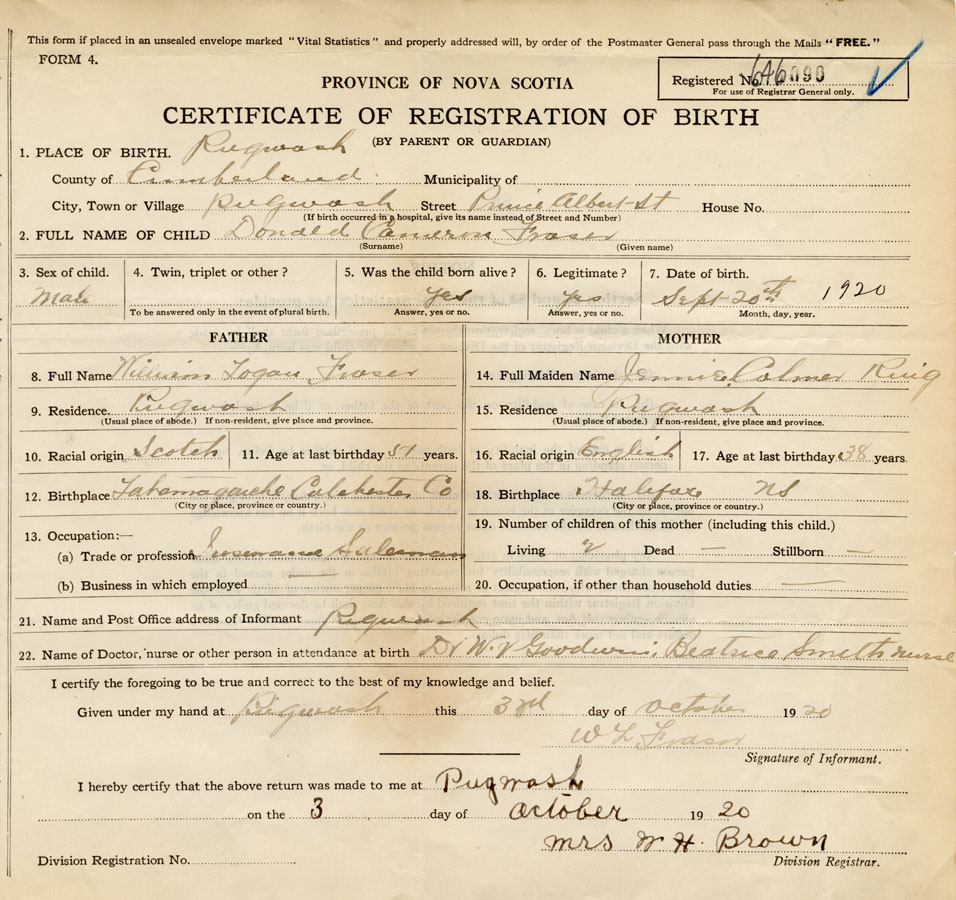 This form if placed in an unsealed envelope marked "Vital Statistics" and properly addressed will, by order of the Postmaster General pass through the Mails "FREE."
FORM 4.
Registered No. 646090
For use of Registrar General only.
PROVINCE OF NOVA SCOTIA
CERTIFICATE OF REGISTRATION OF BIRTH
(BY PARENT OR GUARDIAN)
1. PLACE OF BIRTH. Pugwash
County of Cumberland Municipality of
City, Town or Village Pugwash Street Prince Albert St House No.
(If birth occurred in a hospital, give its name instead of Street and Number)
2. FULL NAME OF CHILD Donald Cameron Fraser
(Surname) (Given name)
3. Sex of child. 4. Twin, triplet or other? 5. Was the child born alive? 6. Legitimate? 7. Date of birth.
Male yes yes Sept 20th 1920
To be answered only in the event of plural birth. Answer, yes or no. Answer, yes or no. Month, day, year.
FATHER MOTHER
8. Full Name William Logan Fraser
9. Residence. Pugwash
(Usual place of abode.) If non-resident, give place and province.
10. Racial origin Scotch 11. Age at last birthday 51 years.
12. Birthplace Tatamagouche Colchester Co
(City or place, province or country.)
13. Occupation:—
(a) Trade or profession Insurance Salesman
(b) Business in which employed —
14. Full Maiden Name Jennie
15. Residence Pugwash
(Usual place of abode.) If non-resident, give place and province.
16. Racial origin English 17. Age at last birthday 38 years.
18. Birthplace Halifax NS
(City or place, province or country.)
19. Number of children of this mother (including this child.)
Living 2 Dead — Stillborn —
20. Occupation, if other than household duties —
21. Name and Post Office address of Informant Pugwash
22. Name of Doctor, nurse or other person in attendance at birth Dr W V Goodwin, Beatrice Smith nurse
I certify the foregoing to be true and correct to the best of my knowledge and belief.
Given under my hand at Pugwash this 3rd day of October 1920
W L Fraser
Signature of Informant.
I hereby certify that the above return was made to me at Pugwash
on the 3 day of October 1920
Mrs W. H. Brown
Division Registration No. Division Registrar.